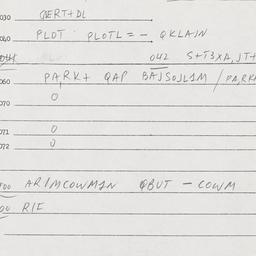 030 QERT+DL
040 PLOT PLOTL = - QKLAJN
042 S+T3XA, JT+
060 PARK+ QAP BAJSOJL1M / PARK
070 0
071 0
072 0
AR/MCOWM1N QBUT - COWM
R/E